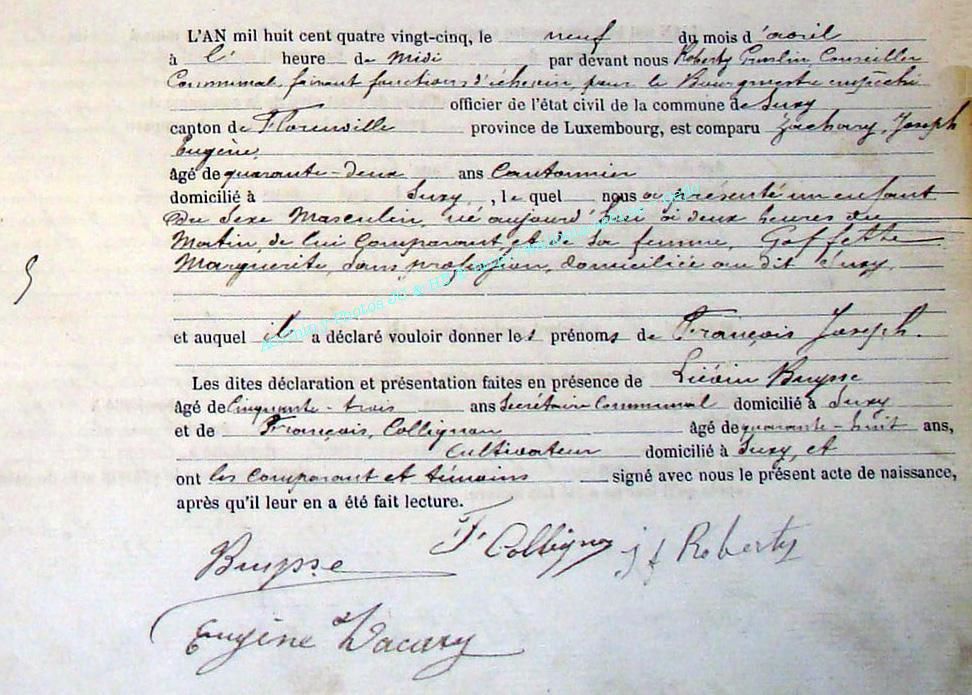 L'AN mil huit cent quatre vingt-cinq, le neuf du mois d'avril
à l' heure de midi par devant nous Roberty Conseiller
Communal, faisant fonctions d'échevin, pour le Bourgmestre empêché
officier de l'état civil de la commune de Suxy
canton de Florenville province de Luxembourg, est comparu Zachary, Joseph
Eugène,
âgé de quarante-deux ans Cantonnier
domicilié à Suxy, , le quel nous a présenté un enfant
du sexe Masculin, né aujourd'hui à deux heures du
Matin, de lui Comparant, et de sa femme, Goffette
Marguerite, sans profession, domiciliée au dit Suxy.
et auquel il a déclaré vouloir donner les prénoms de François Joseph.
Les dites déclaration et présentation faites en présence de Buysse
âgé de Cinquante-trois ans Secrétaire Communal domicilié à Suxy
et de François, Collignon âgé de quarante-huit ans,
Cultivateur domicilié à Suxy, et
ont les Comparant et témoins signé avec nous le présent acte de naissance,
après qu'il leur en a été fait lecture.
Buysse F. Collignon j f Roberty
Eugène Zacary